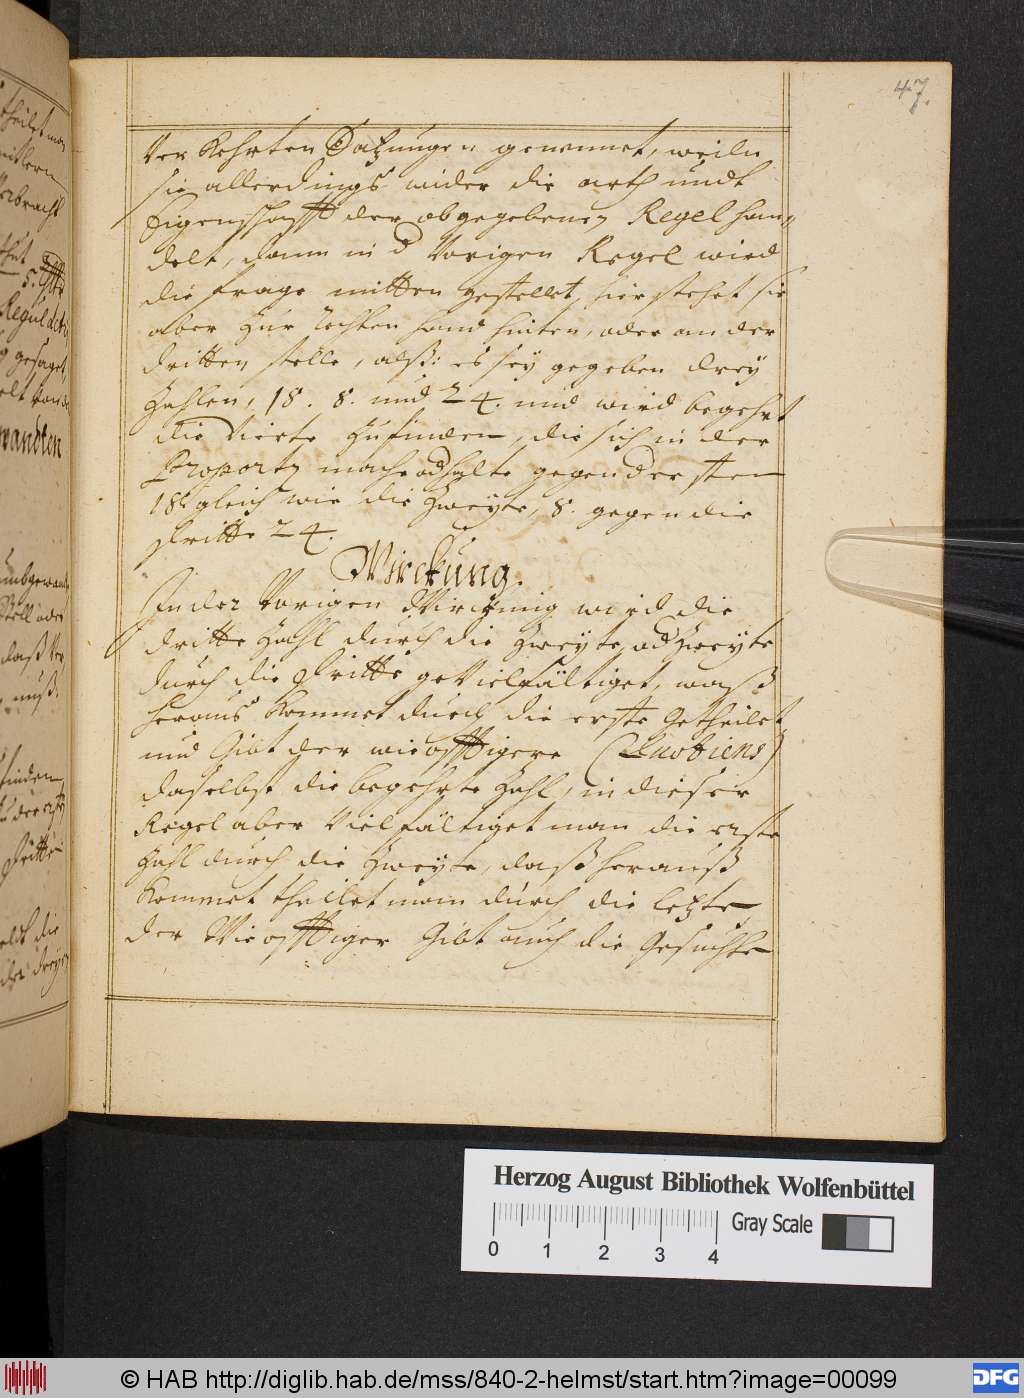 47.
Ver Kehrten Satzungen genennet, weiln
sie allerdings wider die arth undt
Eigenschafft der abgegebenen Regel han„
delt, dann in d Vorigen Regel wird
die frage mitten gestellet, hier stehet sie
aber zur rechten hand hinten, oder an der
dritten stelle, alß: es sey gegeben drey
Zahlen, 18. 8. und 24. und wird begehrt
die Vierte zufinden, die sich in der
Proportz gegen der ersten
18 gleich wie die Zweyte, 8. gegen die
dritte 24.
Wirckung.
In der Vorigen Wirckung wird die
dritte Zahl durch die Zweyte, od Zweyte
durch die Dritte geVielfältiget, waß
heraus Kommet durch die erste Getheilet
und Gibt der wieofftigere (Quotiens)
daselbst die begehrte Zahl, in dieser
Regel aber Vielfältiget man die erste
Zahl durch die Zweyte, daß herauß
Kommet theilet man durch die letzte
der Wieofftiger Gibt auch die Gesuchte
theilet man
mitlern
Regul detri
gesaget,
wandten
daß Ver
muß.
finden
dritte
die
Herzog August Bibliothek Wolfenbüttel
0 1 2 3 4
Gray Scale
© HAB http://diglib.hab.de/mss/840-2-helmst/start.htm?image=00099
DFG